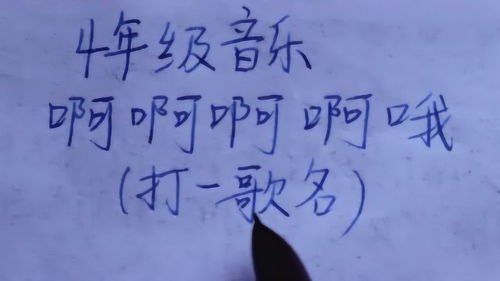 4年级音乐
啊啊啊啊哦
(打一歌名)